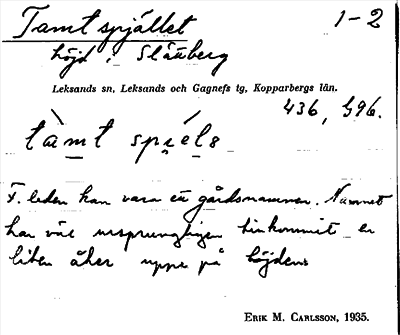 Tamt spjället 1-2
höjd i Slätberg
Leksands sn, Leksands och Gagnefs tg, Kopparbergs län.
436, 596.
tàmt spiéls
F. leden kan vara ett gårdsnamn. Namnet
har väl ursprungligen tillkommit en
liten åker uppe på höjden
ERIK M. CARLSSON, 1935.